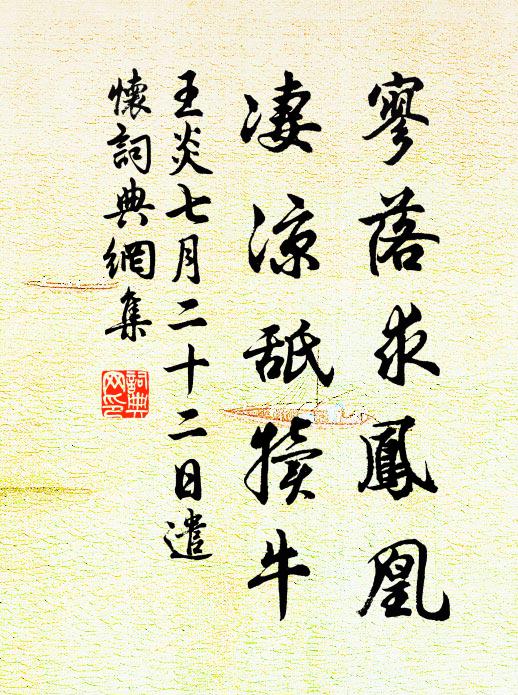 寥落求鳳凰
凄涼舐犢牛
王炎七月二十二日遣
懷詞典網集
詞典
网印